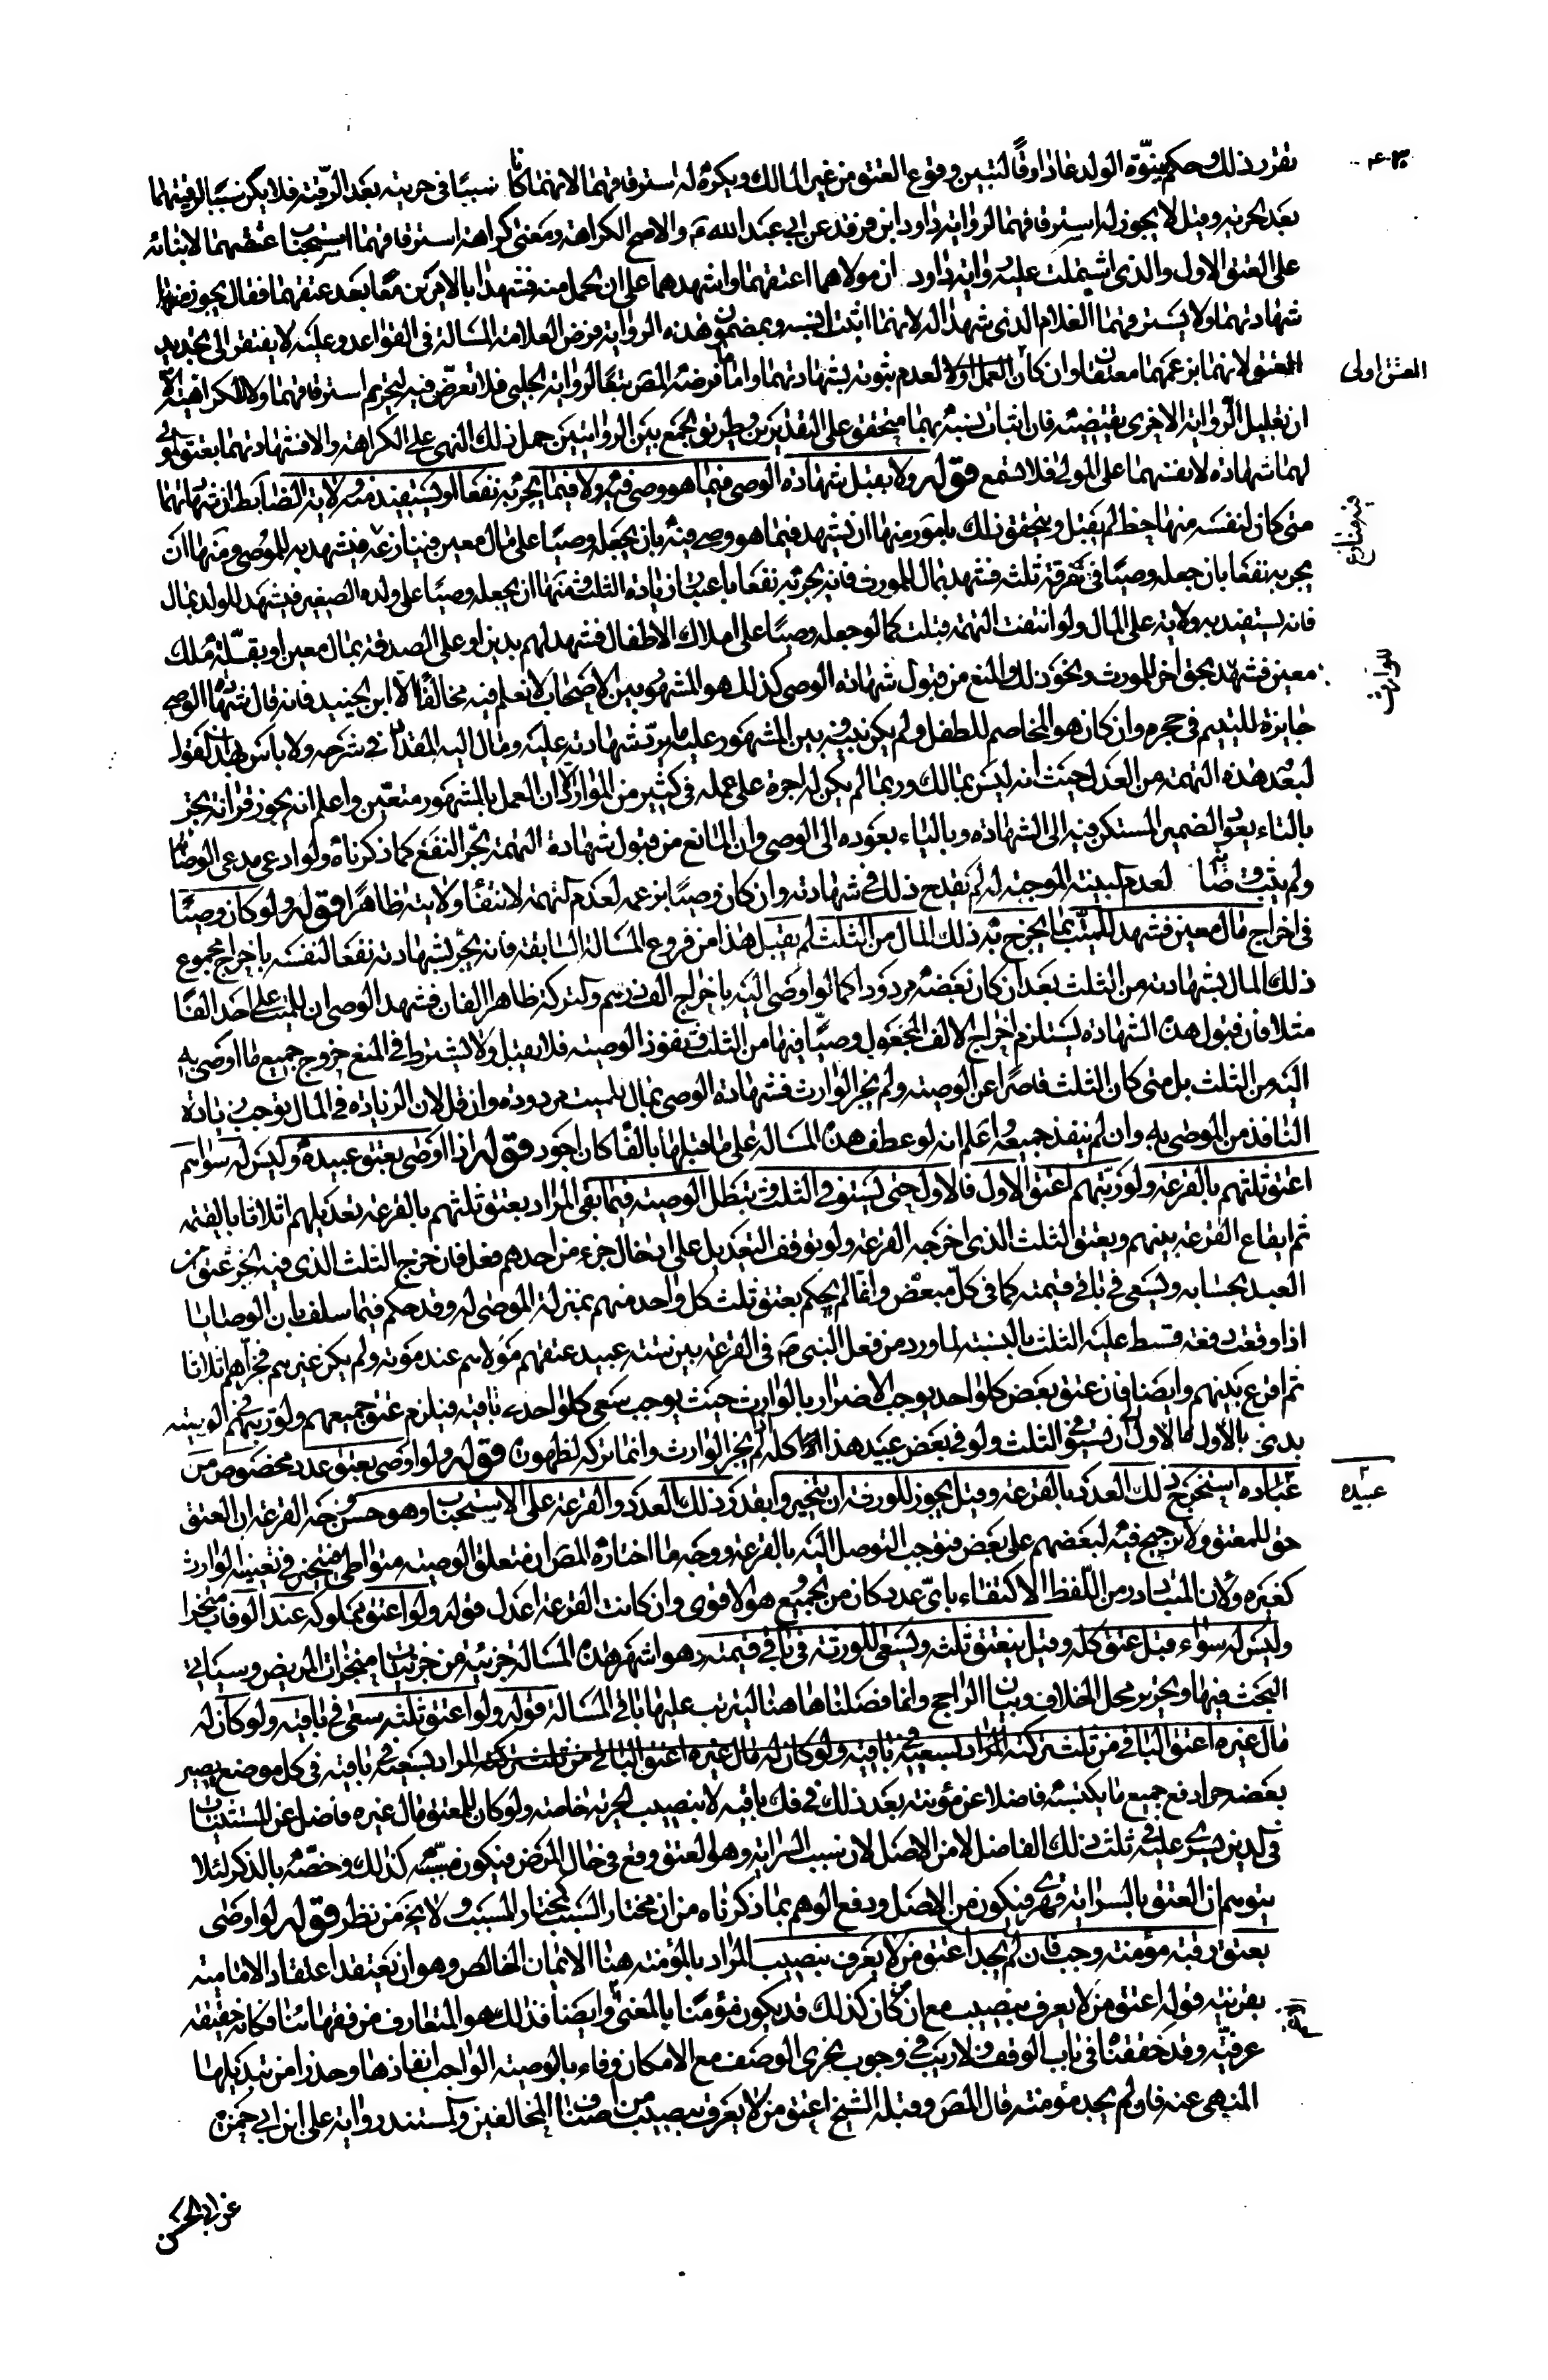 تقرر ذلك وحكم ببنوة الولد عادا رقا لتبين وقوع العتق من غير المالك ويكره له استرقاقهما لانهما كانا سببا في حريته بعد الرقية فلا يكن سببا لرقيتهما
بعد الحرية وقيل لا يجوز له استرقاقهما لرواية داود ابن فرقد عن ابي عبد الله ع والاصح الكراهة ومعنى كراهة استرقاقهما استحباب عتقهما لابنائه
على العتق الاول والذي اشتملت عليه رواية داود ان مولاهما اعتقهما واشهدهما على ان الحمل منه فشهدا بالامرين معا بعد عتقهما فقال يجوز
شهادتهما ولا يسترقهما الغلام الذي شهدا له لانهما اثبتا نسبه وبمضمون هذه الرواية فرض العلامة المسالة في القواعد وعليه لا يفتقر الى تجديد
العتق لانهما بزعمهما معتقان وان كان العمل اولا لعدم ثبوته بشهادتهما واما ما فرضه المص تبعا لرواية الحلبي فلا تعرض فيه لتحريم استرقاقهما ولا للكراهية الا
ان تعليل الرواية الاخرى يقتضيه فان اثبات نسبه بهما متحقق على التقديرين وطريق الجمع بين الروايتين حمل ذلك النهي على الكراهة والا فشهادتهما بعتق المولى
لهما شهادة لانفسهما على المولى فلا تسمع قوله ولا يقبل شهادة الوصي فيما هو وصي فيه ولا فيما يجر به نفعا او يستفيد منه ولاية الضابط ان شهادتهما
متى كان لنفسه منها حظ لم يقبل ويتحقق ذلك بامور منها ان يشهد فيما هو وصي فيه بان يجعله وصيا على مال معين فينازعه فيشهد به للموصي ومنها ان
يجر به نفعا بان جعله وصيا في تفرقة ثلثه فشهد بمال للمورث فانه يجر به نفعا باعتبار زيادة الثلث ومنها ان يجعله وصيا على ولده الصغير فيشهد للولد بمال
فانه يستفيد به ولاية على المال ولو انتفت التهمة قبلت كما لو جعله وصيا على املاك الاطفال فشهد لهم بدين او على الصدقة بمال معين او بقسلة ملك
معين فشهد بحق اخر للمورث ونحو ذلك والمنع من قبول شهادة الوصي كذلك هو المشهور بين الاصحاب لا نعلم فيه مخالفا الا ابن الجنيد فانه قال شهادة الوصي
جايزة لليتيم في حجره وان كان هو المخاصم للطفل ولم يكن بينه وبين المشهود عليه ما يرد شهادته عليه ومال اليه المقداد في شرحه ولا باس بهذا القول
لبعد هذه التهمة من العدل حيث انه ليس بمالك وربما لم يكن له اجرة على عمله في كثير من الموارد الا ان العمل بالمشهور متعين واعلم انه يجوز قراءة يجر
بالتاء بعود الضمير المستكن فيه الى الشهادة وبالياء بعوده الى الوصي وان المانع من قبول شهادة التهمة بجر النفع كما ذكرناه ولو ادعى مدعي الوصاية
ولم يثبت وصايته لعدم البينة الموجبة له لم يقدح ذلك في شهادته وان كان وصيا بزعمه لعدم التهمة لانتفاء ولايته ظاهرا قوله ولو كان وصيا
في اخراج مال معين فشهد للميت بما يخرج به ذلك المال من الثلث لم يقبل هذا من فروع المسالة السابقة فانه يجر بشهادته نفعا لنفسه باخراج مجموع
ذلك المال بشهادته من الثلث بعد ان كان بعضه مردودا كما لو اوصى اليه باخراج الف درهم والتركة ظاهرا الفان فشهد الوصي ان للميت على احد الفا
مثلا فان قبول هذه الشهادة يستلزم اخراج الالف المجعول وصيا فيها من الثلث ونفوذ الوصية فلا يقبل ولا يشترط في المنع خروج جميع ما اوصى به
اليه من الثلث بل متى كان الثلث قاصرا عن الوصية ولم يجز الوارث فشهادة الوصي بمال للميت مردودة وان قل لان الزيادة في المال يوجب زيادة
النافذ من الموصى به وان لم ينفذ جميعه واعلم انه لو عطف هذه المسالة على ما قبلها بالفاء كان اجود قوله اذا اوصى بعتق عبيده وليس له سواهم
اعتق ثلثهم بالقرعة ولو رتبهم اعتق الاول فالاول حتى يستوفي الثلث وتبطل الوصية فيما بقي المراد بعتق ثلثهم بالقرعة تعديلهم اثلاثا بالقيمة
ثم ايقاع القرعة بينهم ويعتق الثلث الذي اخرجه القرعة ولو توقف التعديل على ادخال جزء من احدهم فعل فان خرج الثلث الذي فيه الجزء عتق من
العبد بحسابه ويسعى في باقي قيمته كما في كل مبعض وانما لم يحكم بعتق ثلث كل واحد منهم بمنزلة الموصى له وقد حكم فيما سلف بان الوصايا
اذا وقعت دفعة قسط عليه الثلث بالنسبة لما ورد من فعل النبي ص في القرعة بين ستة عبيد عتقهم مولاهم عند موته ولم يكن غيرهم فجزاهم اثلاثا
ثم اقرع بينهم وايضا فان عتق بعض كل واحد يوجب الاضرار بالوارث حيث يوجب سعي كل واحد في باقيه فيلزم عتق جميعهم ولو رتبهم في الوصية
بدئ بالاول فالاول ان يستوفي الثلث ولو في بعض عبيد هذا كله اذا لم يجز الوارث وانما تركه لظهوره قوله ولو اوصى بعتق عدد مخصوص من
عباده استخرج ذلك العدد بالقرعة وقيل يجوز للورثة ان يتخيروا بقدر ذلك العدد والقرعة على الاستحباب وهو حسن وجه القرعة ان العتق
حق للمعتق ولا ترجيح فيه لبعضهم على بعض فيوجب التوصل اليه بالقرعة ووجه ما اختاره المص ان متعلق الوصية متواطئ فيتخير في تعيينه الوارث
كغيره ولان المتبادر من اللفظ الاكتفاء باي عدد كان من الجميع هو الاقوى وان كانت القرعة اعدل قوله ولو اعتق مملوكه عند الوفاة منجزا
وليس له سواء قيل عتق كله وقيل ينعتق ثلثه ويسعى للورثة في باقي قيمته وهو اشهر هذه المسالة جزئية من جزئيات منجزات المريض وسياتي
البحث فيها وتحرير محل الخلاف وبيان الراجح وانما فضلناها هنا ليترتب عليها باقي المسالة قوله ولو اعتق ثلثه سعى في باقيه ولو كان له
مال غيره اعتق الباقي من ثلث تركته المراد بسعيه في باقيه ولو كان له مال غيره اعتق الباقي من ثلث تركته المراد بسعيه في باقيه في كل موضع يصير
بعضه حرا دفع جميع ما يكتسبه فاضلا عن مؤنته بعد ذلك في فك باقيه لا بنصيب الحرية خاصة ولو كان للمعتق مال غيره فاضل عن المستثنيات
في الدين يسرى عليه في ثلث ذلك الفاضل لا من الاصل لان سبب السراية وهو العتق وقع في حال المرض فيكون مسببه كذلك وخصه بالذكر لئلا
يتوهم ان العتق بالسراية قهري فيكون من الاصل ودفع الوهم بما ذكرناه من ان مختار السبب كمختار المسبب ولا يخ من نظر قوله لو اوصى
بعتق رقبة مؤمنة وجب فان لم يجد اعتق من لا يعرف بنصب المراد بالمؤمنة هنا الايمان الخالص وهو ان يعتقد اعتقاد الامامية
بقرينة قوله اعتق من لا يعرف بنصب مع ان كان كذلك قد يكون مؤمنا بالمعنى وايضا فذلك هو المتعارف من فقهائنا فكانه حقيقة
عرفية وقد حققنا في باب الوقف ولا ريب في وجوب تحري الوصف مع الامكان وفاء بالوصية الواجب انفاذها وحذرا من تبديلها
المنهي عنه فان لم يجد مؤمنة قال المص وقبله الشيخ اعتق من لا يعرف بنصب من اصناف المخالفين والمستند رواية علي ابن ابي حمزة
عن ابي الحسن
العتق اولى
فيه منازع
للوارث
عبيده